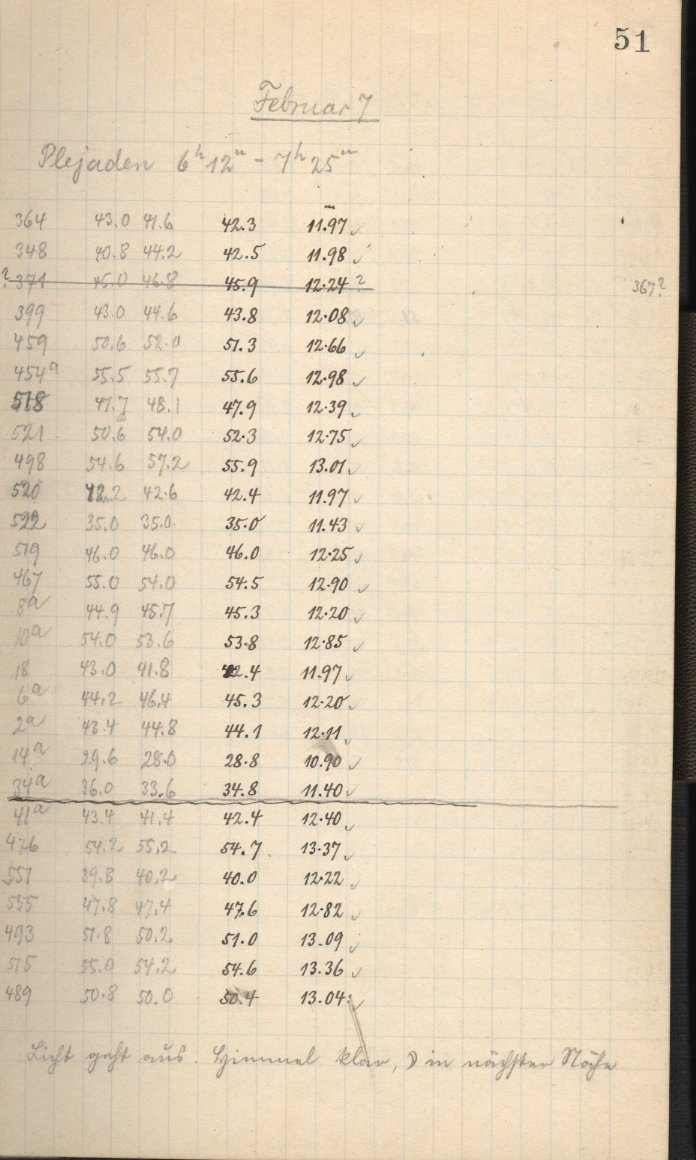 51
Februar 7
Plejaden 6h 12m - 7h 25m
364 43.0 41.6 42.3 11.97 ✓
348 40.8 44.2 42.5 11.98 ✓
? 371 45.0 46.8 45.9 12.24 ? 367?
399 43.0 44.6 43.8 12.08 ✓
459 50.6 52.0 51.3 12.66 ✓
454a 55.5 55.7 55.6 12.98 ✓
518 47.7 48.1 47.9 12.39 ✓
521 50.6 54.0 52.3 12.75 ✓
498 54.6 57.2 55.9 13.01 ✓
520 42.2 42.6 42.4 11.97 ✓
522 35.0 35.0 35.0 11.43 ✓
519 46.0 46.0 46.0 12.25 ✓
467 55.0 54.0 54.5 12.90 ✓
8a 44.9 45.7 45.3 12.20 ✓
10a 54.0 53.6 53.8 12.85 ✓
18 43.0 41.8 42.4 11.97 ✓
6a 44.2 46.4 45.3 12.20 ✓
2a 43.4 44.8 44.1 12.11 ✓
14a 29.6 28.0 28.8 10.90 ✓
34a 36.0 33.6 34.8 11.40 ✓
41a 43.4 41.4 42.4 12.40 ✓
476 54.2 55.2 54.7 13.37 ✓
551 39.8 40.2 40.0 12.22 ✓
535 47.8 47.4 47.6 12.82 ✓
493 51.8 50.2 51.0 13.09 ✓
515 55.0 54.2 54.6 13.36 ✓
489 50.8 50.0 50.4 13.04 ✓
Licht geht aus. Himmel klar, ☽ in nächster Nähe